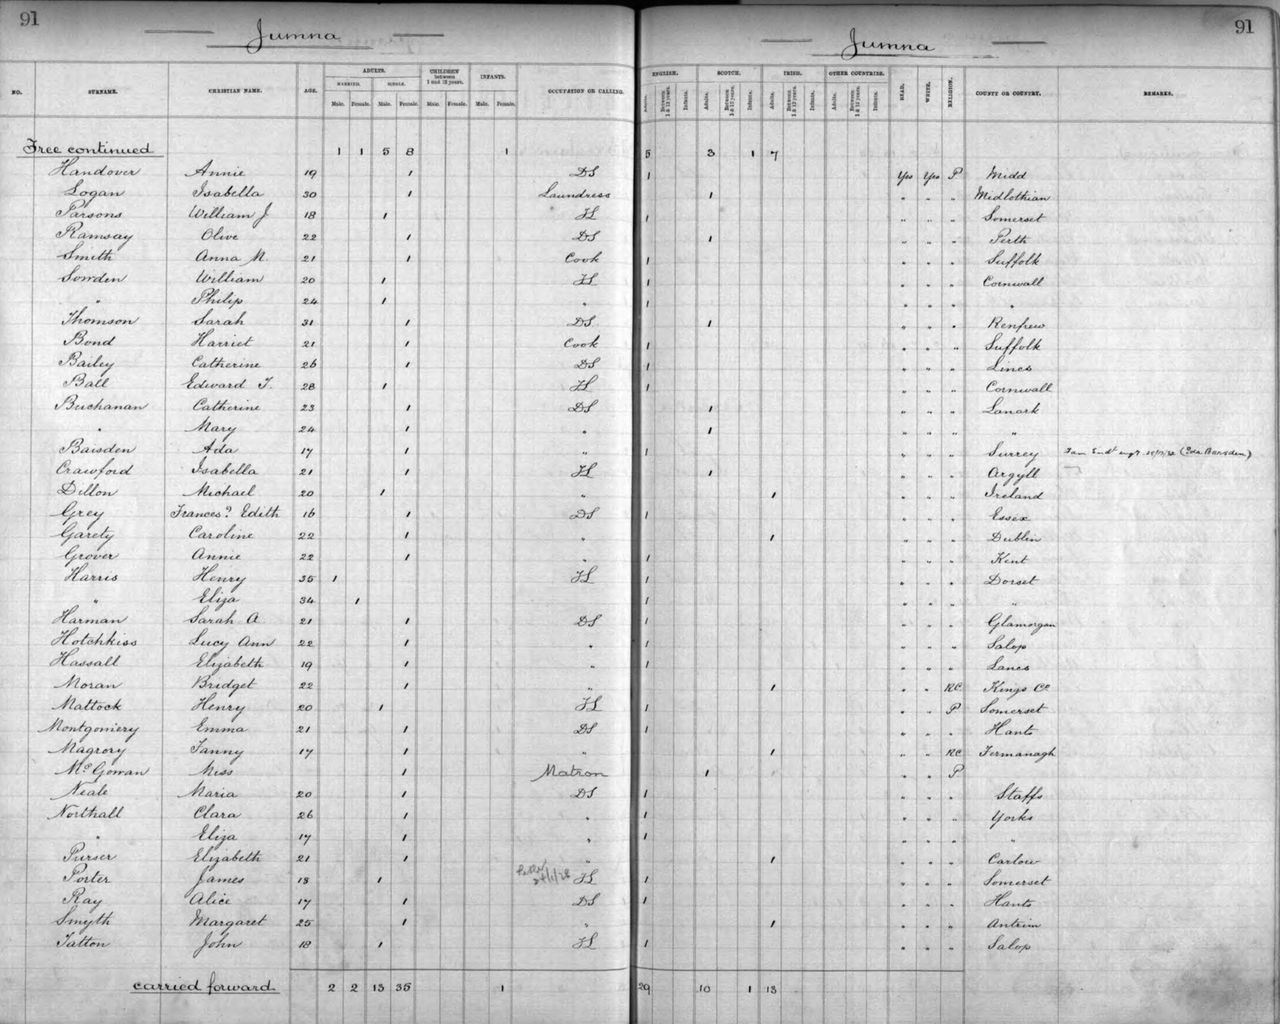 91
Jumna
Jumna
91
NO. SURNAME. CHRISTIAN NAME. AGE. ADULTS. MARRIED. Male. Female. SINGLE. Male. Female. CHILDREN between 1 and 12 years. Male. Female. INFANTS. Male. Female. OCCUPATION OR CALLING. ENGLISH. Adults. Between 1 & 12 years. Infants. SCOTCH. Adults. Between 1 & 12 years. Infants. IRISH. Adults. Between 1 & 12 years. Infants. OTHER COUNTRIES. Adults. Between 1 & 12 years. Infants. READ. WRITE. RELIGION. COUNTY OR COUNTRY. REMARKS.
Free continued 1 1 5 8 1 5 3 1 7
Handover Annie 19 1 DS 1 Yes Yes P Midd
Logan Isabella 30 1 Laundress 1 " " " Midlothian
Parsons William J 18 1 FL 1 " " " Somerset
Ramsay Olive 22 1 DS 1 " " " Perth
Smith Anna M. 21 1 Cook 1 " " " Suffolk
Sowden William 20 1 FL 1 " " " Cornwall
" Philip 24 1 " 1 " " " "
Thomson Sarah 31 1 DS 1 " " " Renfrew
Bond Harriet 21 1 Cook 1 " " " Suffolk
Bailey Catherine 26 1 DS 1 " " " Lincs
Ball Edward T. 28 1 FL 1 " " " Cornwall
Buchanan Catherine 23 1 DS 1 " " " Lanark
" Mary 24 1 " 1 " " " "
Baisden Ada 17 1 " 1 " " " Surrey (Ada Barsden)
Crawford Isabella 21 1 FL 1 " " " Argyll
Dillon Michael 20 1 " 1 " " " Ireland
Grey Frances? Edith 16 1 DS 1 " " " Essex
Garety Caroline 22 1 " 1 " " " Dublin
Grover Annie 22 1 " 1 " " " Kent
Harris Henry 35 1 FL 1 " " " Dorset
" Eliza 34 1 1 " " " "
Harman Sarah A 21 1 DS 1 " " " Glamorgan
Hotchkiss Lucy Ann 22 1 " 1 " " " Salop
Hassall Elizabeth 19 1 " 1 " " " Lancs
Moran Bridget 22 1 " 1 " " RC Kings Co
Mattock Henry 20 1 FL 1 " " P Somerset
Montgomery Emma 21 1 DS 1 " " " Hants
Magrory Fanny 17 1 " 1 " " RC Fermanagh
McGowan Miss 1 Matron 1 " " P
Neale Maria 20 1 DS 1 " " " Staffs
Northall Clara 26 1 " 1 " " " Yorks
" Eliza 17 1 " 1 " " " "
Purser Elizabeth 21 1 " 1 " " " Carlow
Porter James 18 1 FL 1 " " " Somerset
Ray Alice 17 1 DS 1 " " " Hants
Smyth Margaret 25 1 " 1 " " " Antrim
Tatton John 18 1 FL 1 " " " Salop
carried forward 2 2 13 35 1 29 10 1 13